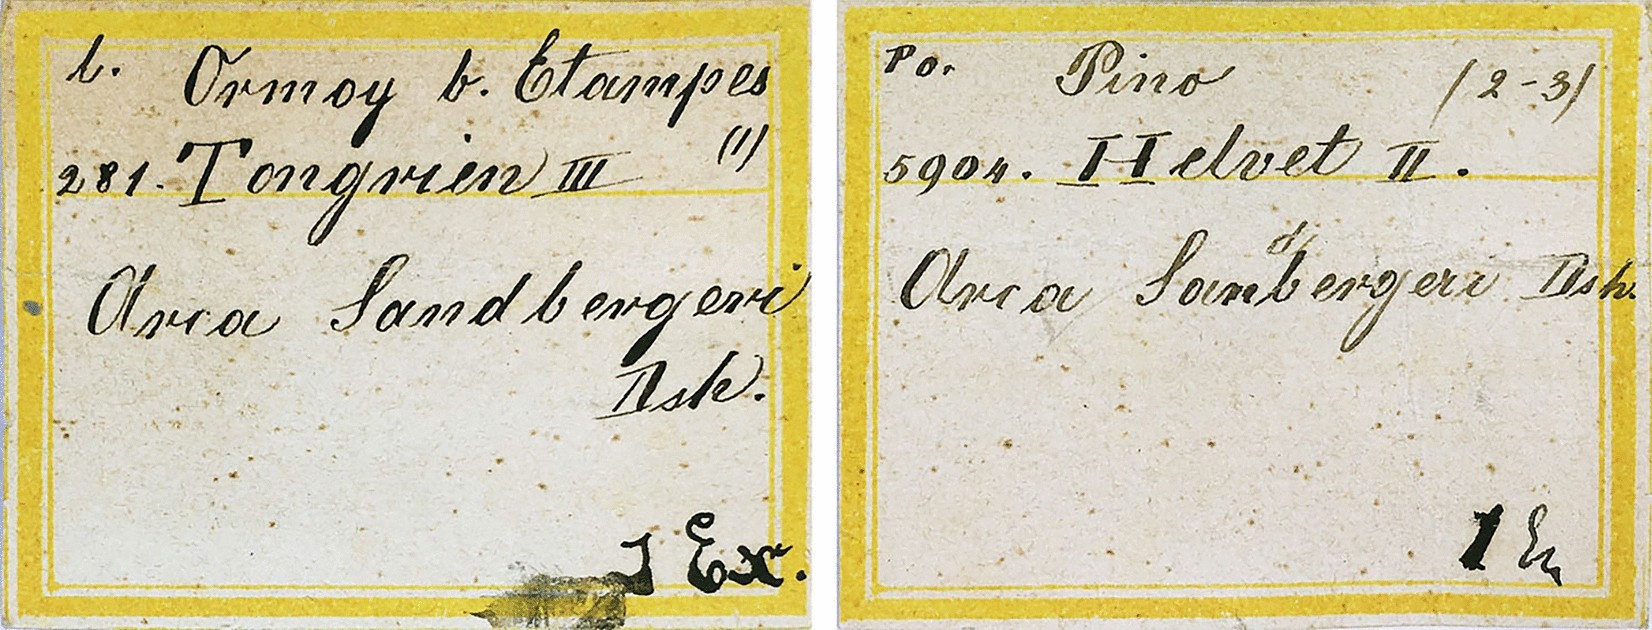 b. Ormoy b. Etampes
281. Tongrien III (1)
Arca Sandbergeri
Dsh.
1 Ex.
Po. Pino (2-3)
5904. Helvet II.
Arca Sandbergeri Dsh.
1 Ex